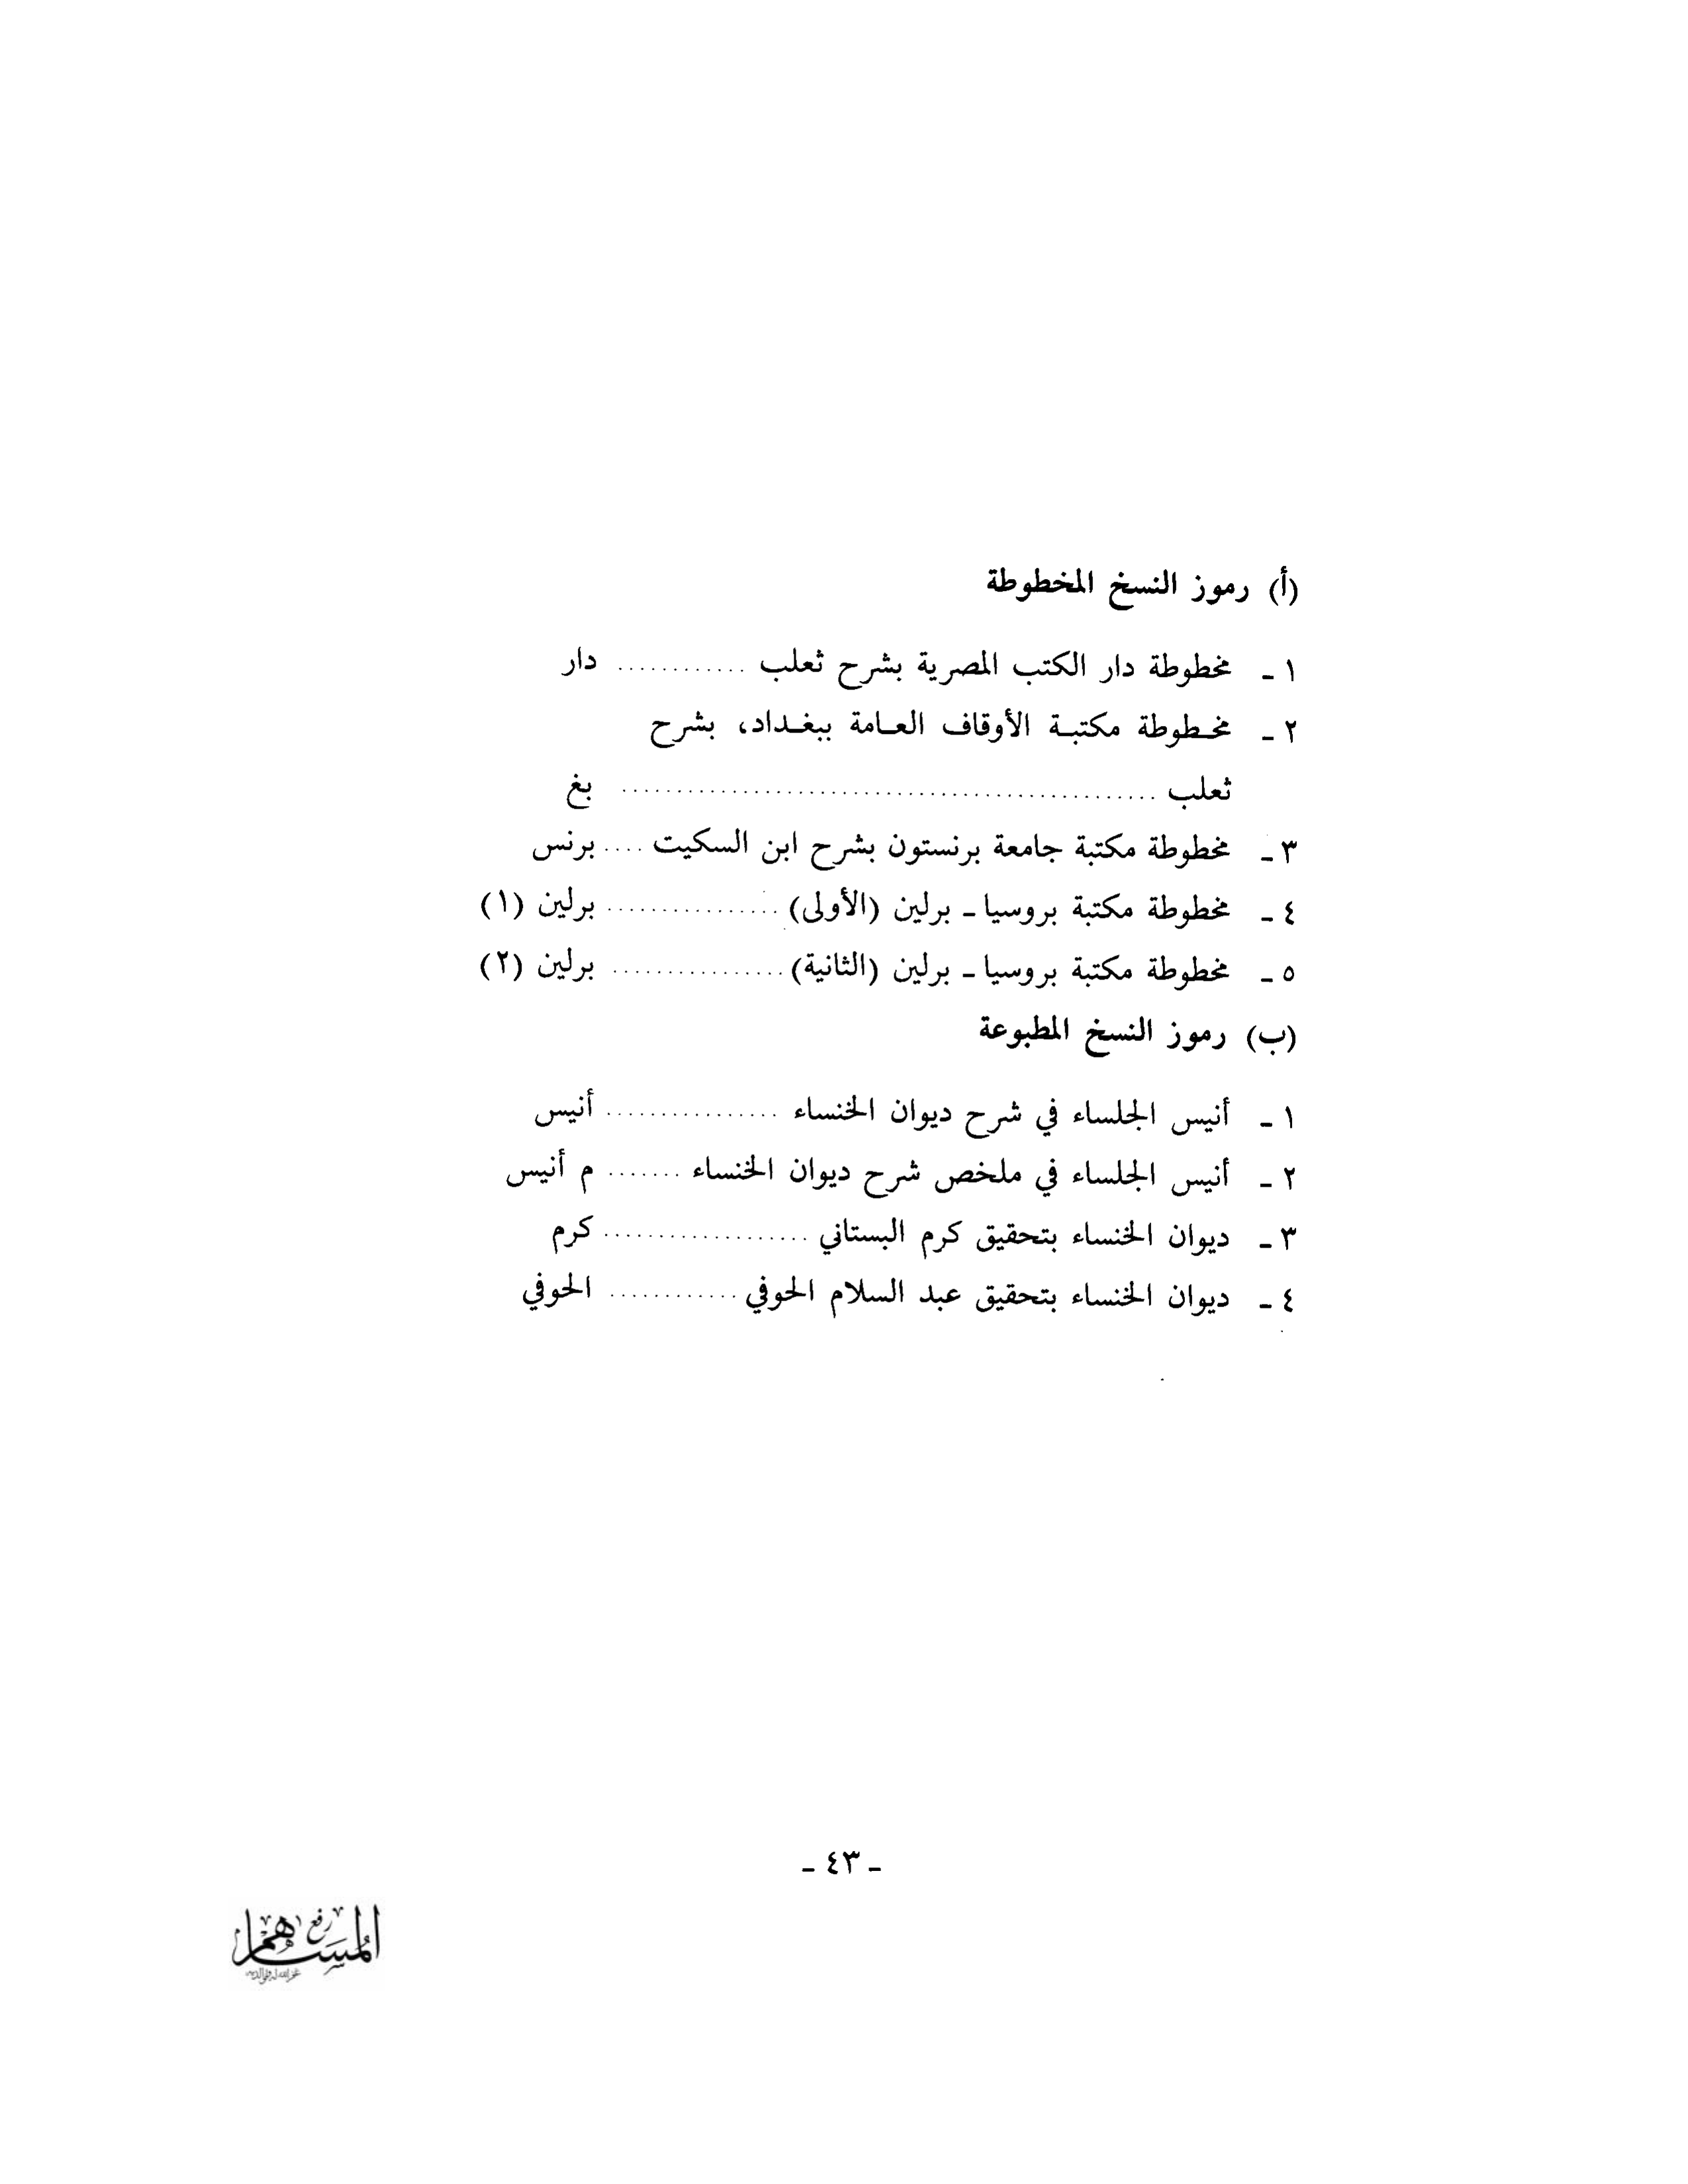 (أ) رموز النسخ المخطوطة
١ ـ مخطوطة دار الكتب المصرية بشرح ثعلب ............ دار
٢ ـ مخـطوطة مكتبـة الأوقاف العـامة ببغـداد، بشرح
ثعلب ................................................. بغ
٣ ـ مخطوطة مكتبة جامعة برنستون بشرح ابن السكيت .... برنس
٤ ـ مخطوطة مكتبة بروسيا ـ برلين (الأولى) ................ برلين (١)
٥ ـ مخطوطة مكتبة بروسيا ـ برلين (الثانية) ................ برلين (٢)
(ب) رموز النسخ المطبوعة
١ ـ أنيس الجلساء في شرح ديوان الخنساء ................ أنيس
٢ ـ أنيس الجلساء في ملخص شرح ديوان الخنساء ....... م أنيس
٣ ـ ديوان الخنساء بتحقيق كرم البستاني ................... كرم
٤ ـ ديوان الخنساء بتحقيق عبد السلام الحوفي ............ الحوفي
ـ ٤٣ ـ
رفع
المساهم